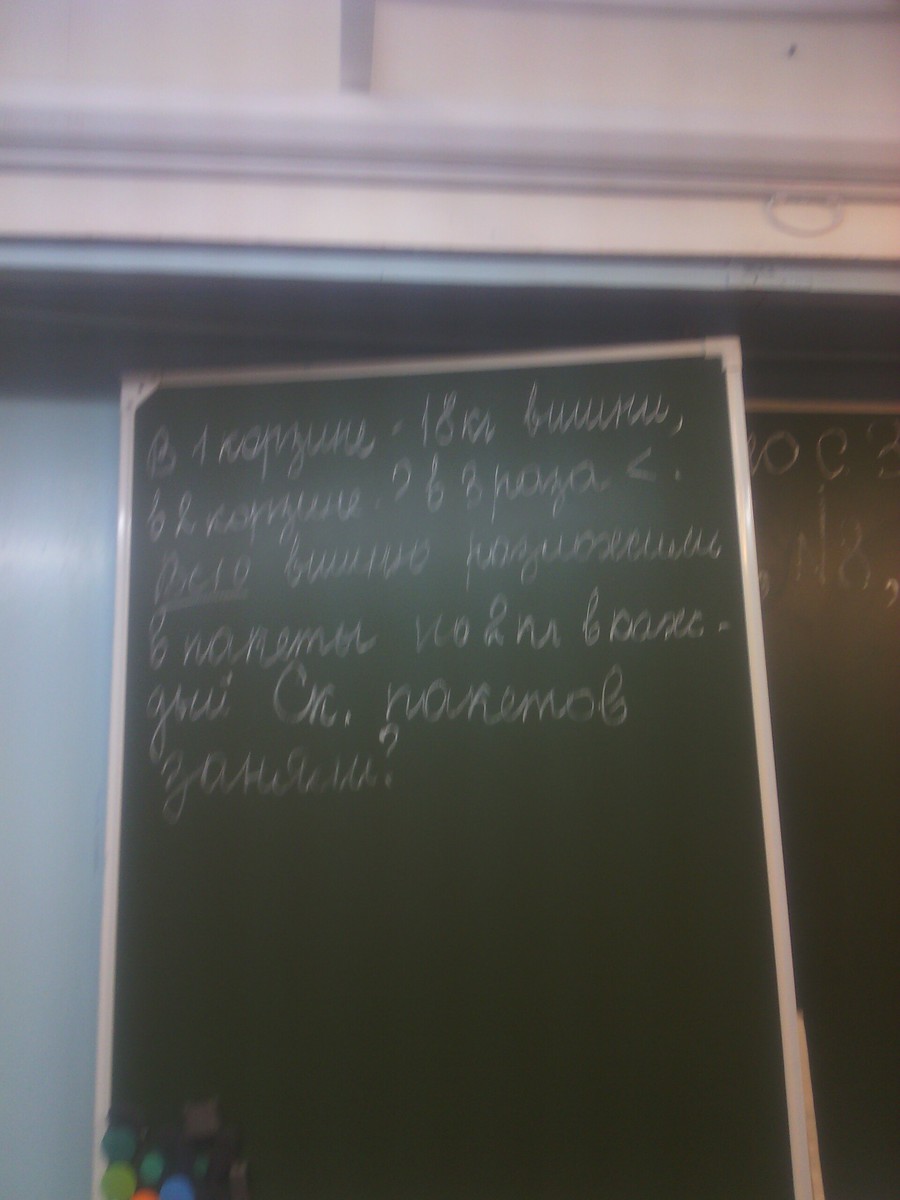 В 1 корзине - 18 кг вишни,
в 2 корзине - ? в 3 раза <.
Всю вишню разложили
в пакеты по 2 кг в каж-
дый Ск. пакетов
заняли?
ю с 3